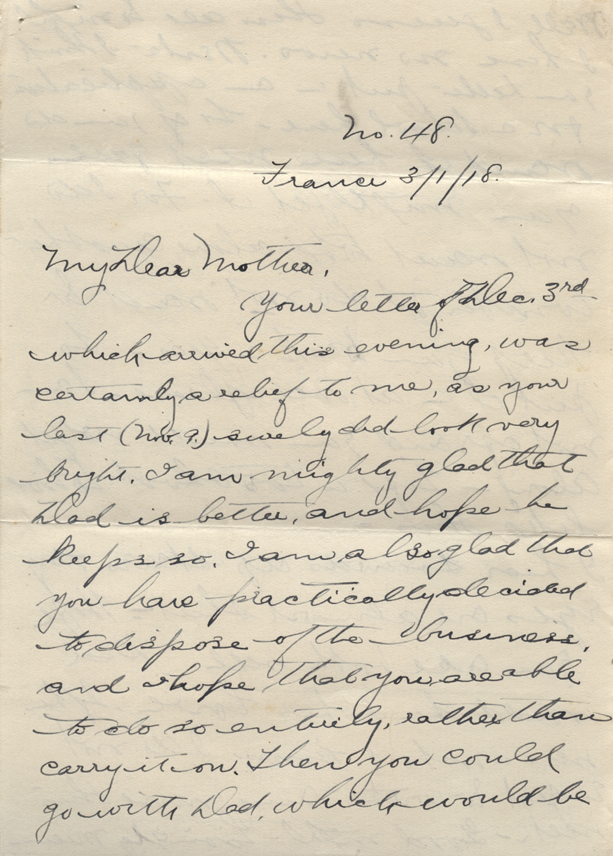 No. 48.
France 3/1/18.
My Dear Mother,
Your letter of Dec. 3rd
which arrived this evening, was
certainly a relief to me, as your
last (Nov. 9.) surely did look very
bright. I am mighty glad that
Dad is better, and hope he
keeps so. I am also glad that
you have practically decided
to dispose of the business,
and I hope that you are able
to do so entirely, rather than
carry it on. Then you could
go with Dad, which would be